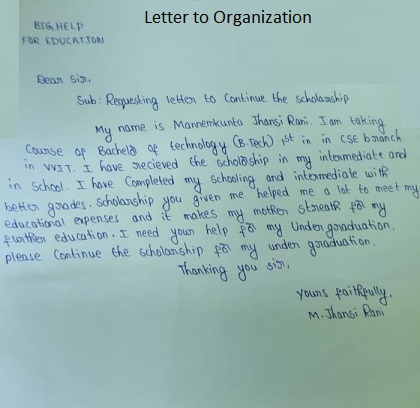 Letter to Organization
BIG HELP
FOR EDUCATION
Dear Sir,
Sub: Requesting letter to Continue the scholarship
My name is Mannemkunta Jhansi Rani. I am taking
Course of Bachelor of technology (B.Tech) 1st in in CSE branch
in VVIT. I have recieved the scholarship in my intermediate and
in school. I have Completed my schooling and intermediate with
better grades. scholarship you given me helped me a lot to meet my
educational expenses and it makes my mother for my
further education. I need your help for my Undergraduation.
please Continue the scholarship for my under graduation.
Thanking you sir,
yours faithfully,
M. Jhansi Rani